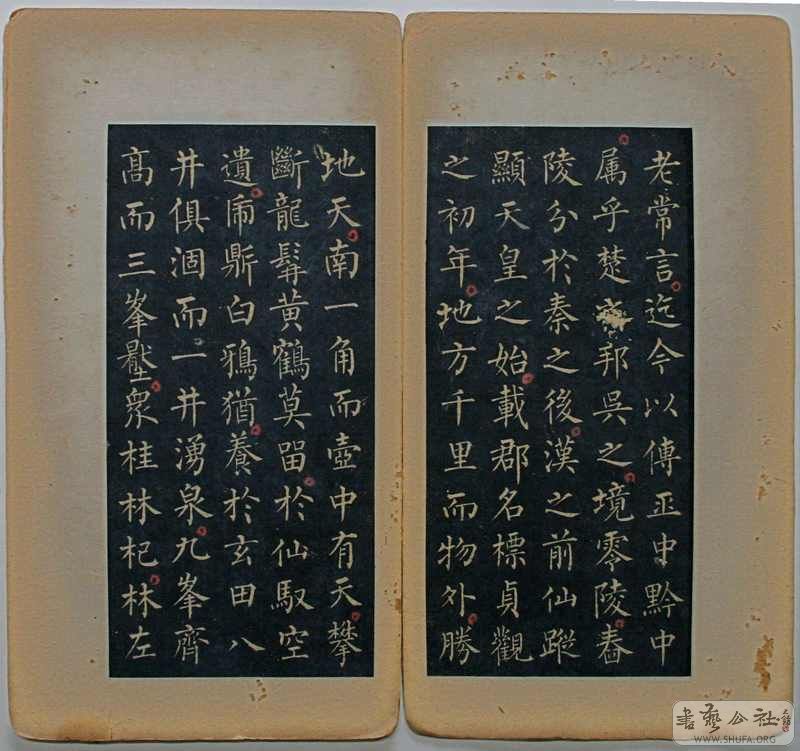 老常言迄今以傳巫中黔中
属乎楚邦吳之境零陵舂
陵分於秦之後漢之前仙蹤
顯天皇之始載郡名標貞觀
之初年地方千里而物外勝
地天南一角而壺中有天攀
斷龍髯黄鶴莫留於仙馭空
遺乕鼎白鴉猶養於玄田八
井俱涸而一井湧泉九峯齊
髙而三峯壓衆桂林杞林左
書藝公社
WWW.SHUFA.ORG